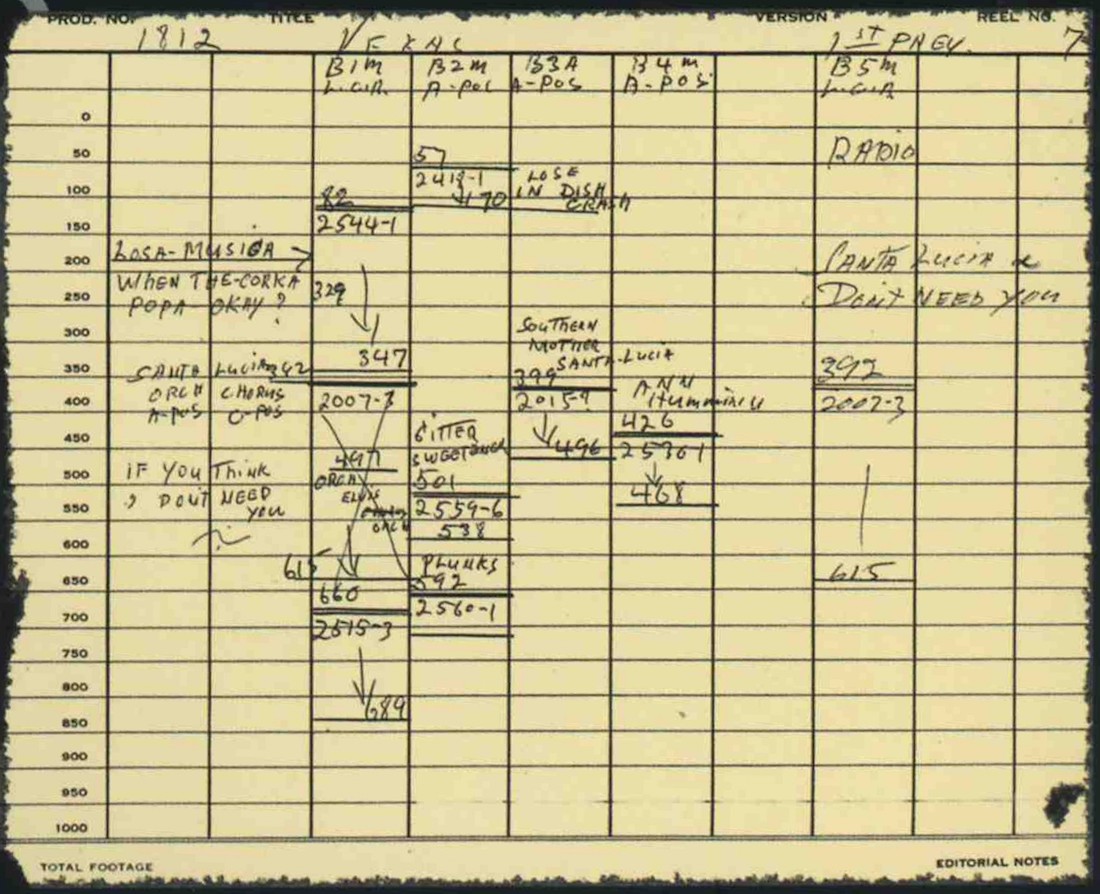 PROD. NO. TITLE VERSION REEL NO.
1812 1ST PREV. 7
B1M B2M B3A B4M B5M
L.C.R. A-POS A-POS A-POS L.C.R.
0
50
100
150
200
250
300
350
400
450
500
550
600
650
700
750
800
850
900
950
1000
LOSA-MUSICA →
WHEN THE-CORKA
POPA-OKAY?
SANTA LUCIA 342
ORCH CHORUS
A-POS C-POS
IF YOU THINK
I DON'T NEED
YOU
82
2544-1
329
347
2007-3
497
ORCH
ELVIS
ORCH
615
660
2515-3
689
57
170
BITTER
501
2559-6
538
PLUNKS
592
2560-1
LOSE
IN DISH
CRASH
SOUTHERN
MOTHER
SANTA-LUCIA
399
496
ANN
HUMMING
426
468
RADIO
SANTA LUCIA &
DON'T NEED YOU
392
2007-3
615
TOTAL FOOTAGE EDITORIAL NOTES